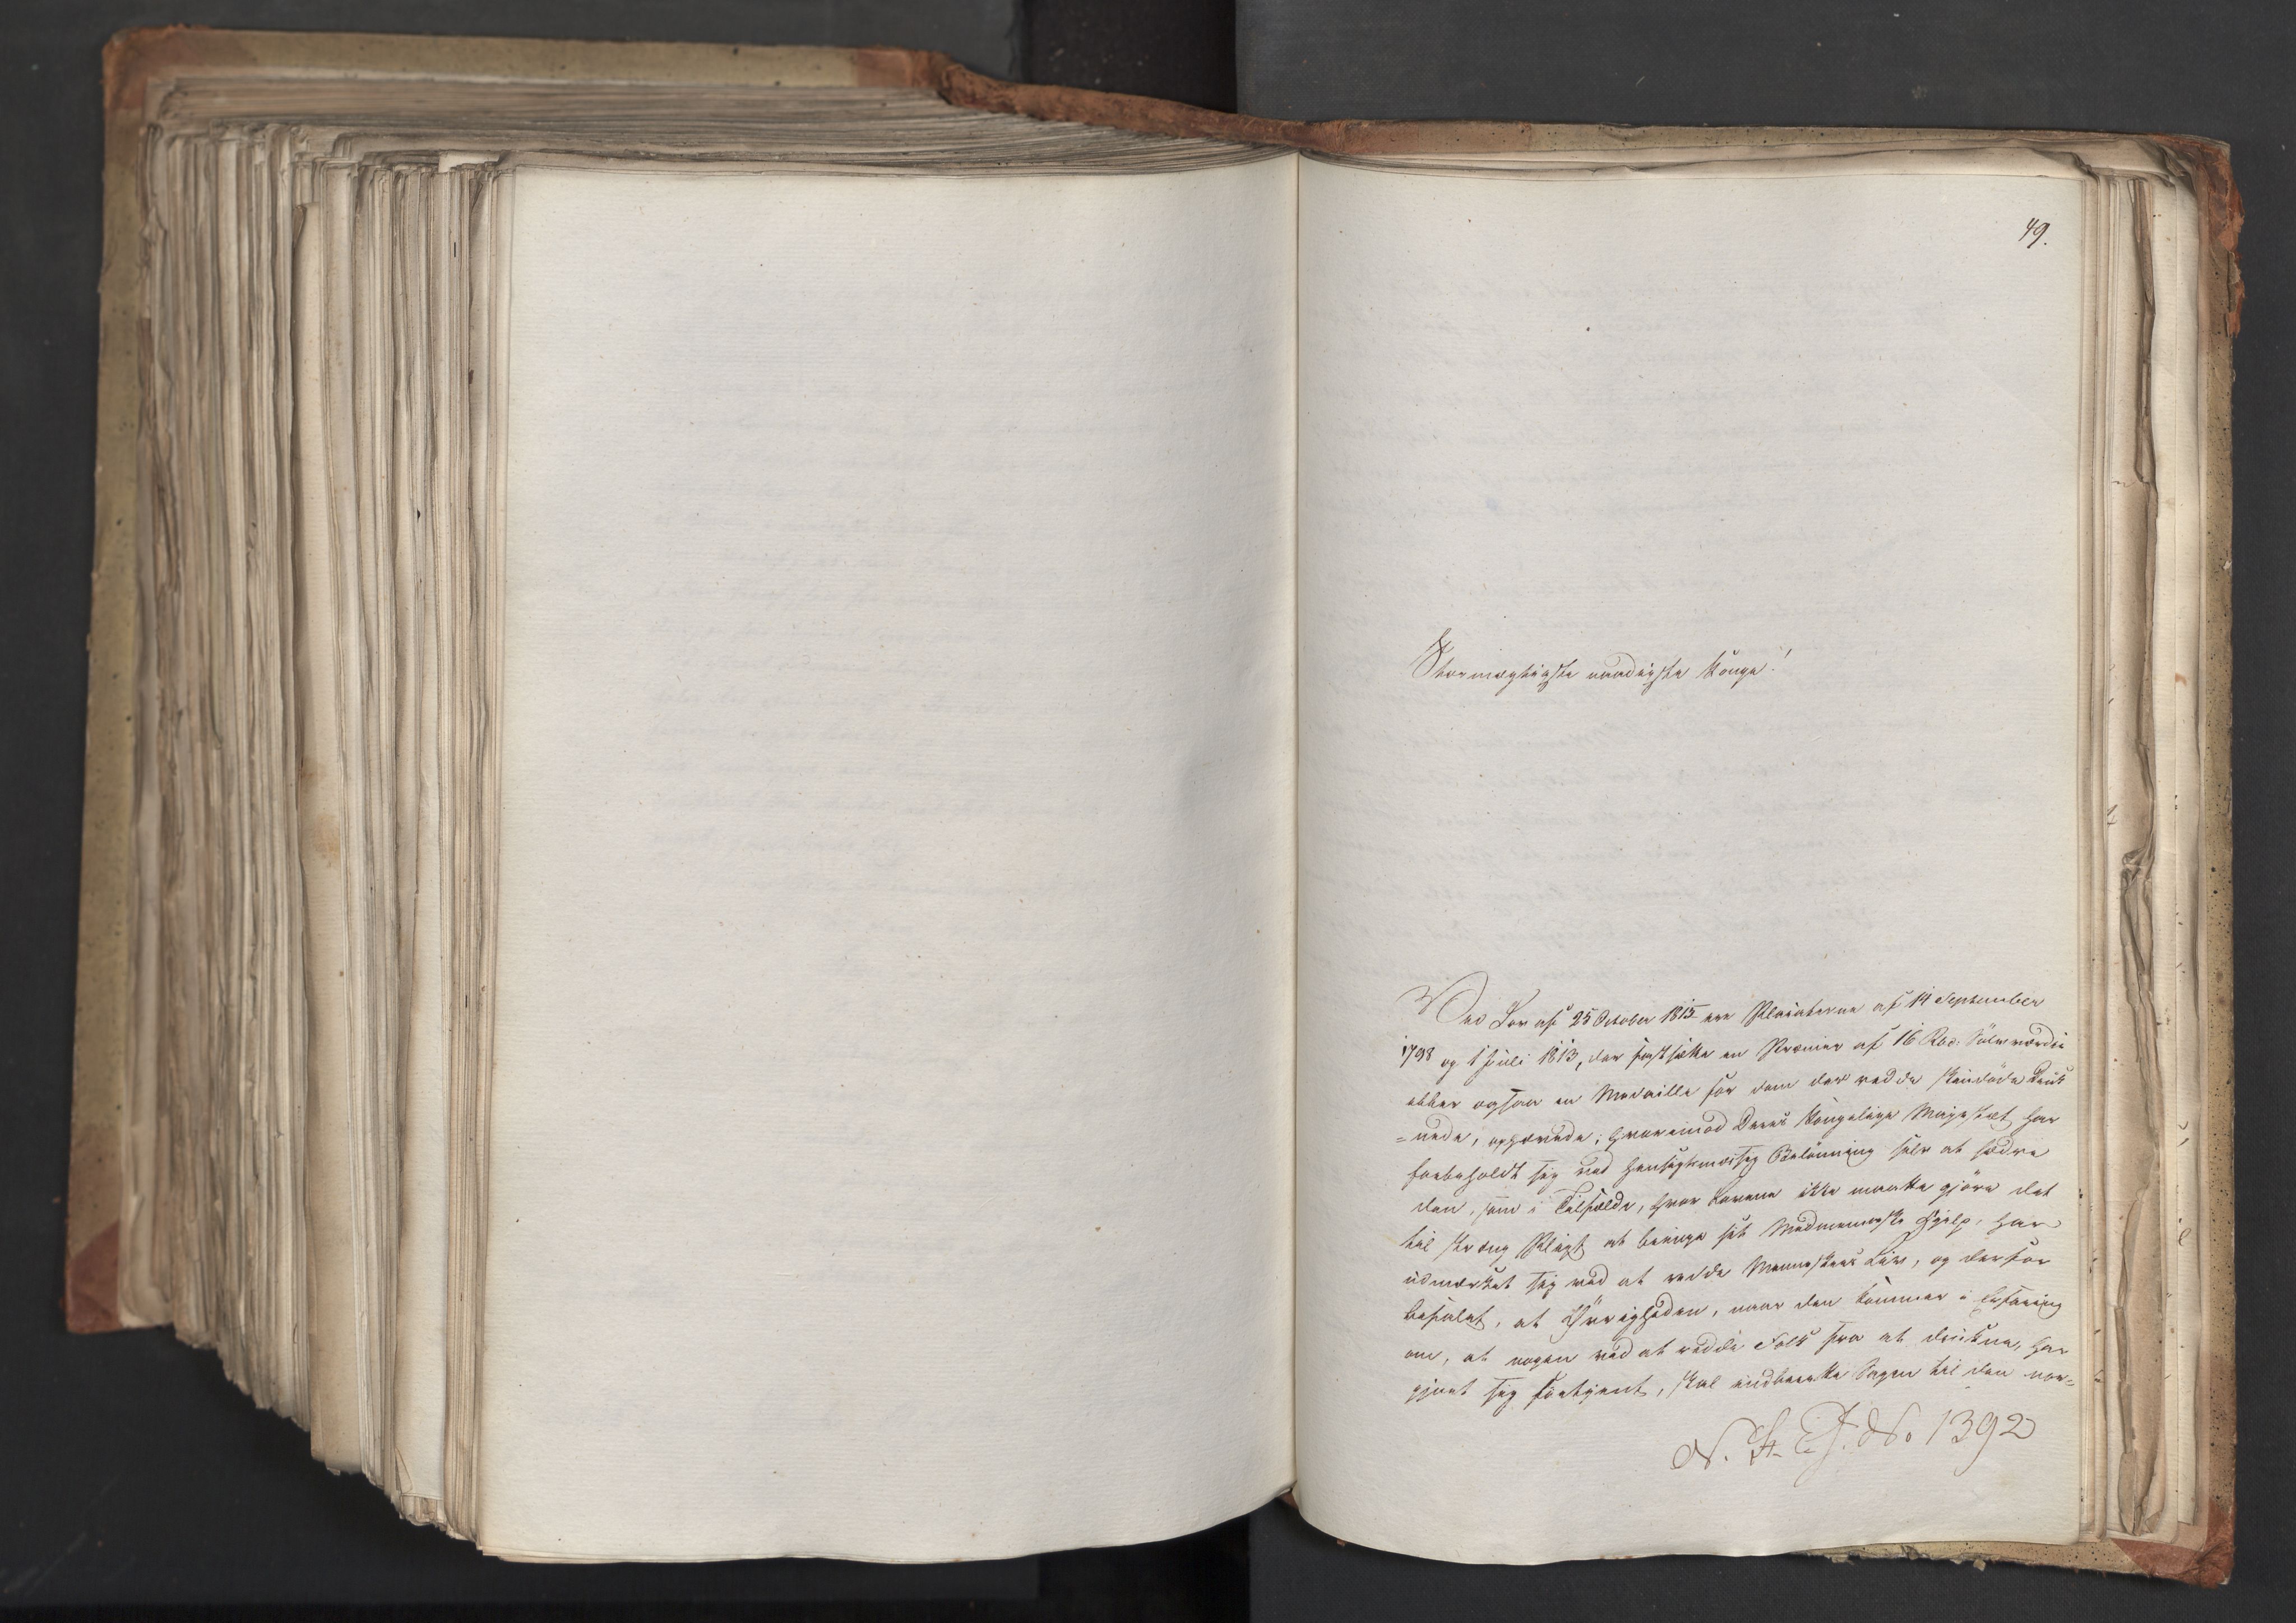 49.
Stormægtigste naadigste Konge!
Ved Lov af 25 October 1815 ere Placaterne af 14 September
1798 og 1 Juli 1813, der fastsætte en Præmie af 16 Rbd. Sölvværdie
eller ogsaa en Medaille for dem der redde skindöde Druk
=nede, ophævede; hvorimod Deres Kongelige Majestæt har
forbeholdt sig ved hensigtmæssig Belönning selv at hædre
den, som i Tilfælde, hvor Lovene ikke maatte gjöre det
til streng Pligt at bringe sit Medmenneske Hjelp, har
udmærket sig ved at redde Menneskers Liv, og derfor
befalet, at Øvrigheden, naar den kommer i Erfaring
om, at nogen ved at redde Folk fra at drukne, har
gjort sig fortjent, skal indberette Sagen til den nor=
N. St. E. J. No 1392